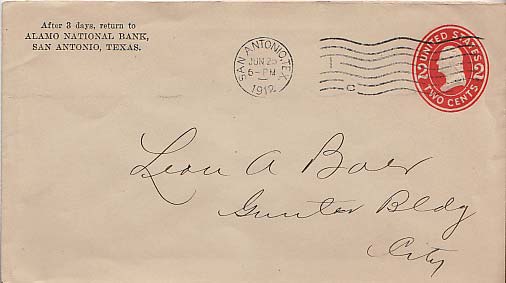 After 3 days, return to
ALAMO NATIONAL BANK,
SAN ANTONIO, TEXAS.
SAN ANTONIO, TEX.
JUN 25
6-PM
1912
C
UNITED STATES
2 2
TWO CENTS
Leon A Boer
Gunter Bldg
City